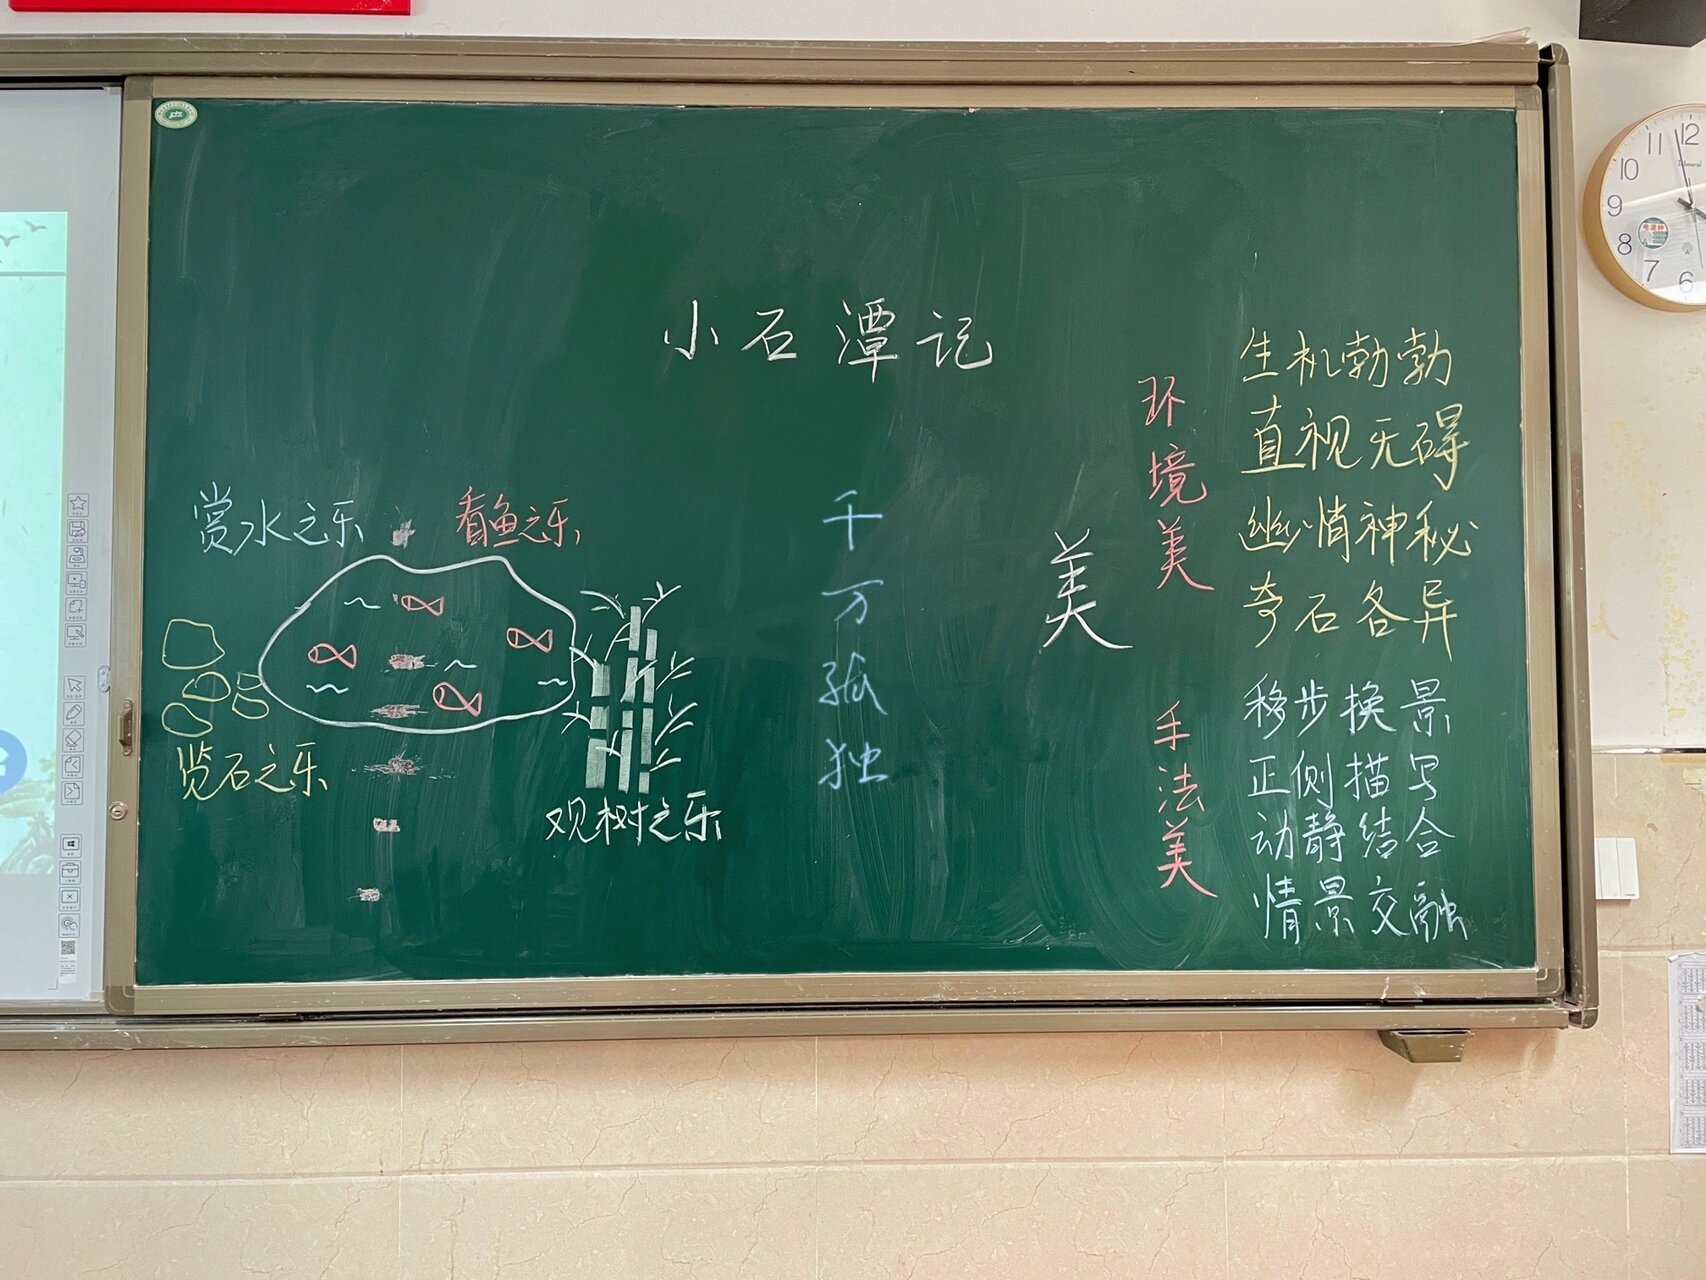 小石潭记
赏水之乐
看鱼之乐
览石之乐
观树之乐
千万孤独
美
环境美
生机勃勃
直视无碍
幽悄神秘
奇石各异
手法美
移步换景
正侧描写
动静结合
情景交融
12
11
10
9
8
7
6